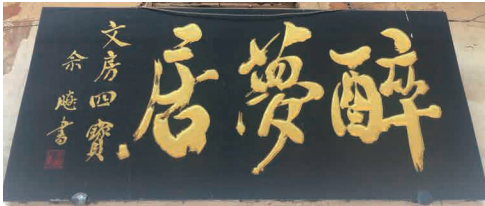 醉夢居
文房四寶
余勝書